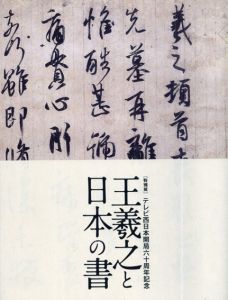 羲之頓首
先墓再離
惟酷甚號
痛貫心肝
奈何雖即脩
［特別展］テレビ西日本開局六十周年記念
王羲之と
日本の書